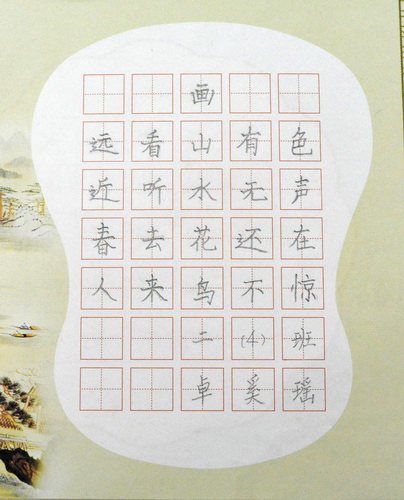 画
远看山有色
近听水无声
春去花还在
人来鸟不惊
二(4)班
卓奚瑶